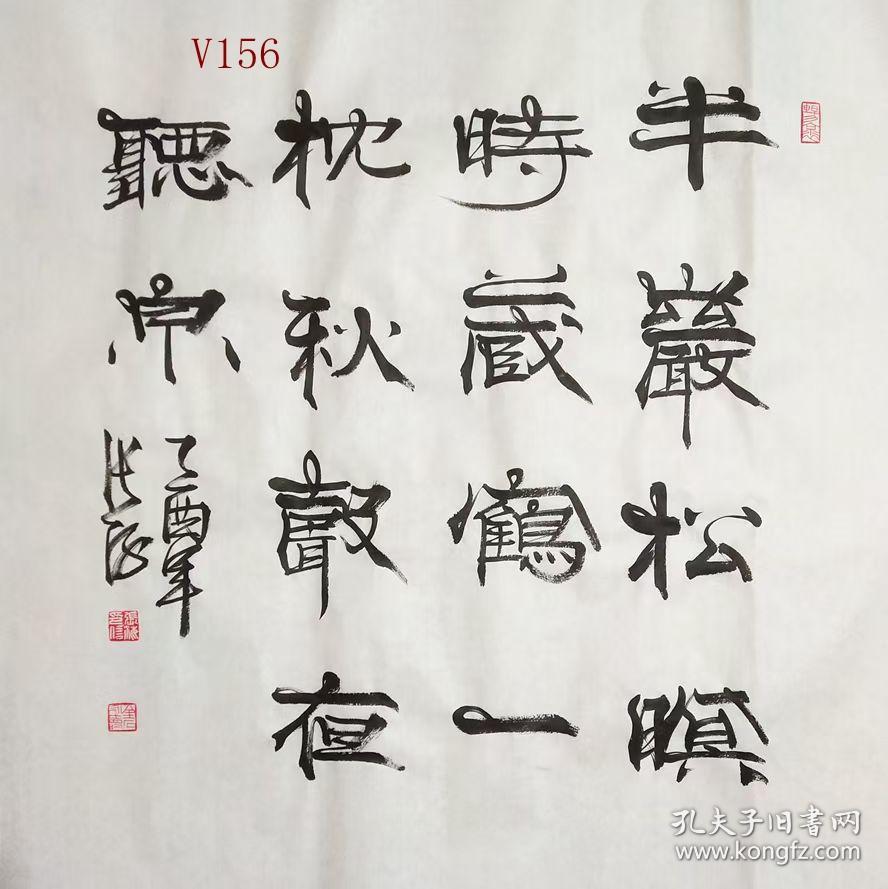 V156
半巖松暝
時藏鶴一
枕秋聲夜
聽泉
乙酉年
孔夫子旧书网
www.kongfz.com